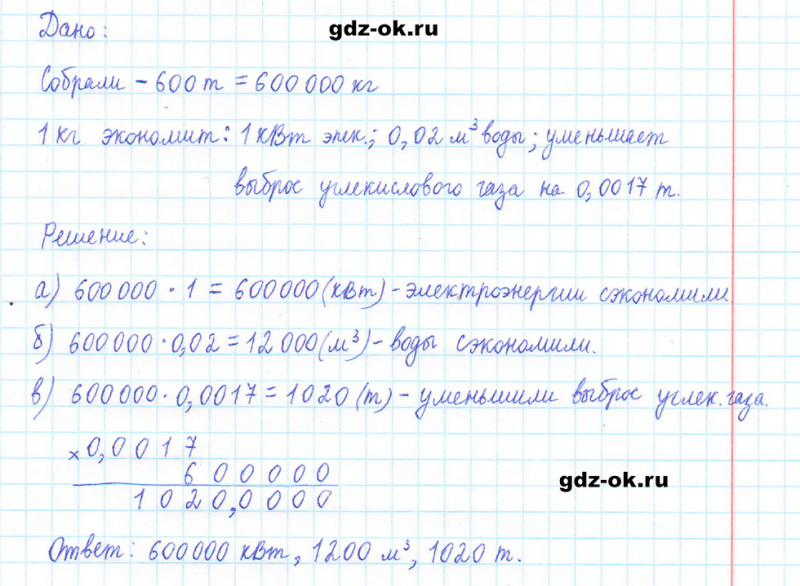 Дано:
gdz-ok.ru
Собрали – 600 т = 600 000 кг
1 кг экономит: 1 кВт элек.; 0,02 м³ воды; уменьшает
выброс углекислового газа на 0,0017 т.
Решение:
а) 600 000 · 1 = 600 000 (кВт) – электроэнергии сэкономили
б) 600 000 · 0,02 = 12 000 (м³) – воды сэкономили.
в) 600 000 · 0,0017 = 1020 (т) – уменьшили выброс углек. газа.
× 0,0017
600000
1020,0000
gdz-ok.ru
Ответ: 600 000 кВт, 1200 м³, 1020 т.